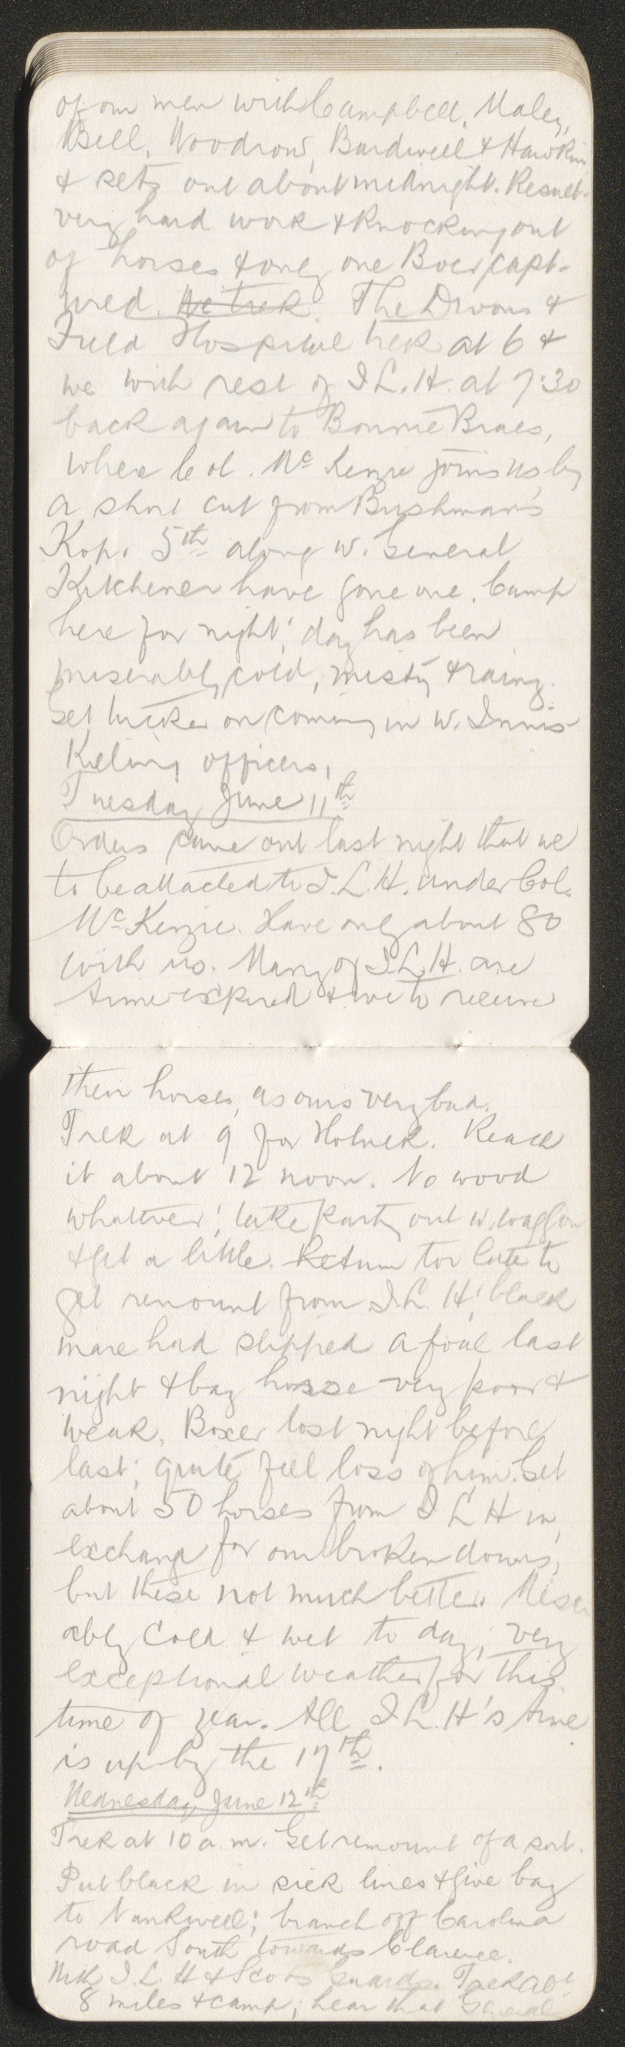 of our men with Campbell, Maley,
Bell, Woodrow, Bardwell & Hawkins
& sets out about midnight. Result
very hard work & knocking out
of horses & only one Boer capt-
ured. We trek. The Devons &
Field Hospital trek at 6 &
we with rest of I.L.H. at 7.30
back again to Bonnie Braes,
where Col. McKenzie joins us by
a short cut from Bushman's
Kop. 5th along w. General
Kitchener have gone on. Camp
here for night; day has been
miserably cold, misty & raining.
Get on coming in w. Innis-
Killing officers.
Tuesday June 11th
Orders came out last night that we
to be attached to I.L.H. under Col.
McKenzie. Have only about 80
with us. Many of I.L.H. are
time expired & we to receive
their horses, as ours very bad.
Trek at 9 for Holnek. Reach
it about 12 noon. No wood
whatever; take party out w. waggon
& get a little. Return too late to
get remount from I.L.H; black
mare had slipped a foal last
night & bay horse very poor &
weak. Boxer lost night before
last; quite feel loss of him. Get
about 50 horses from I L H in
exchange for our broken downs;
but these not much better. Miser-
ably cold & wet to day; very
exceptional weather for this
time of year. All I.L.H's time
is up by the 17th.
Wednesday June 12th
Trek at 10 a.m. Get remount of a sort.
Put black in sick lines & give bay
to Nankivell; branch off Carolina
road South towards Clarence.
With I.L.H & Scots Guards. Trek abt
8 miles & camp; hear that General